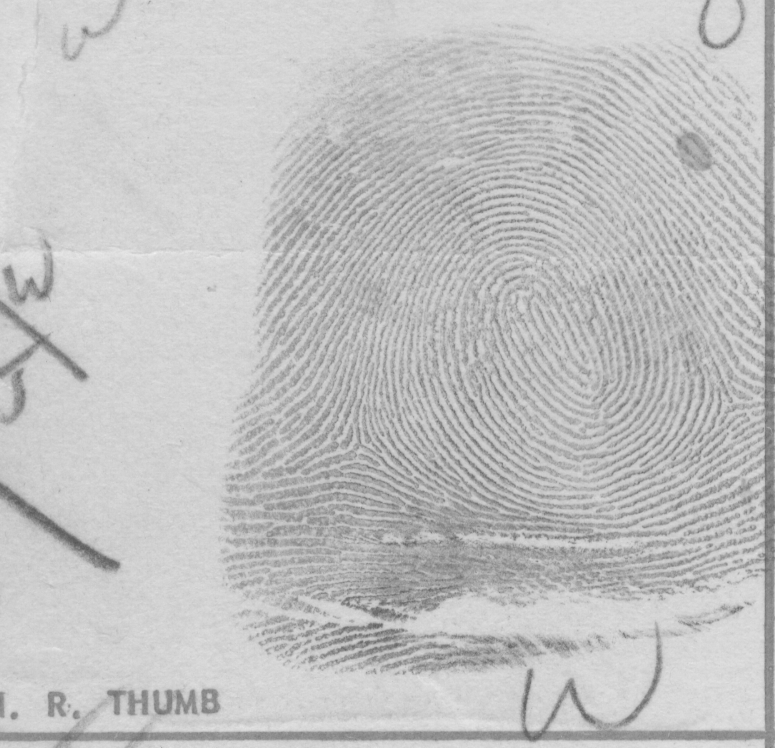 W
O
W
1. R. THUMB
W